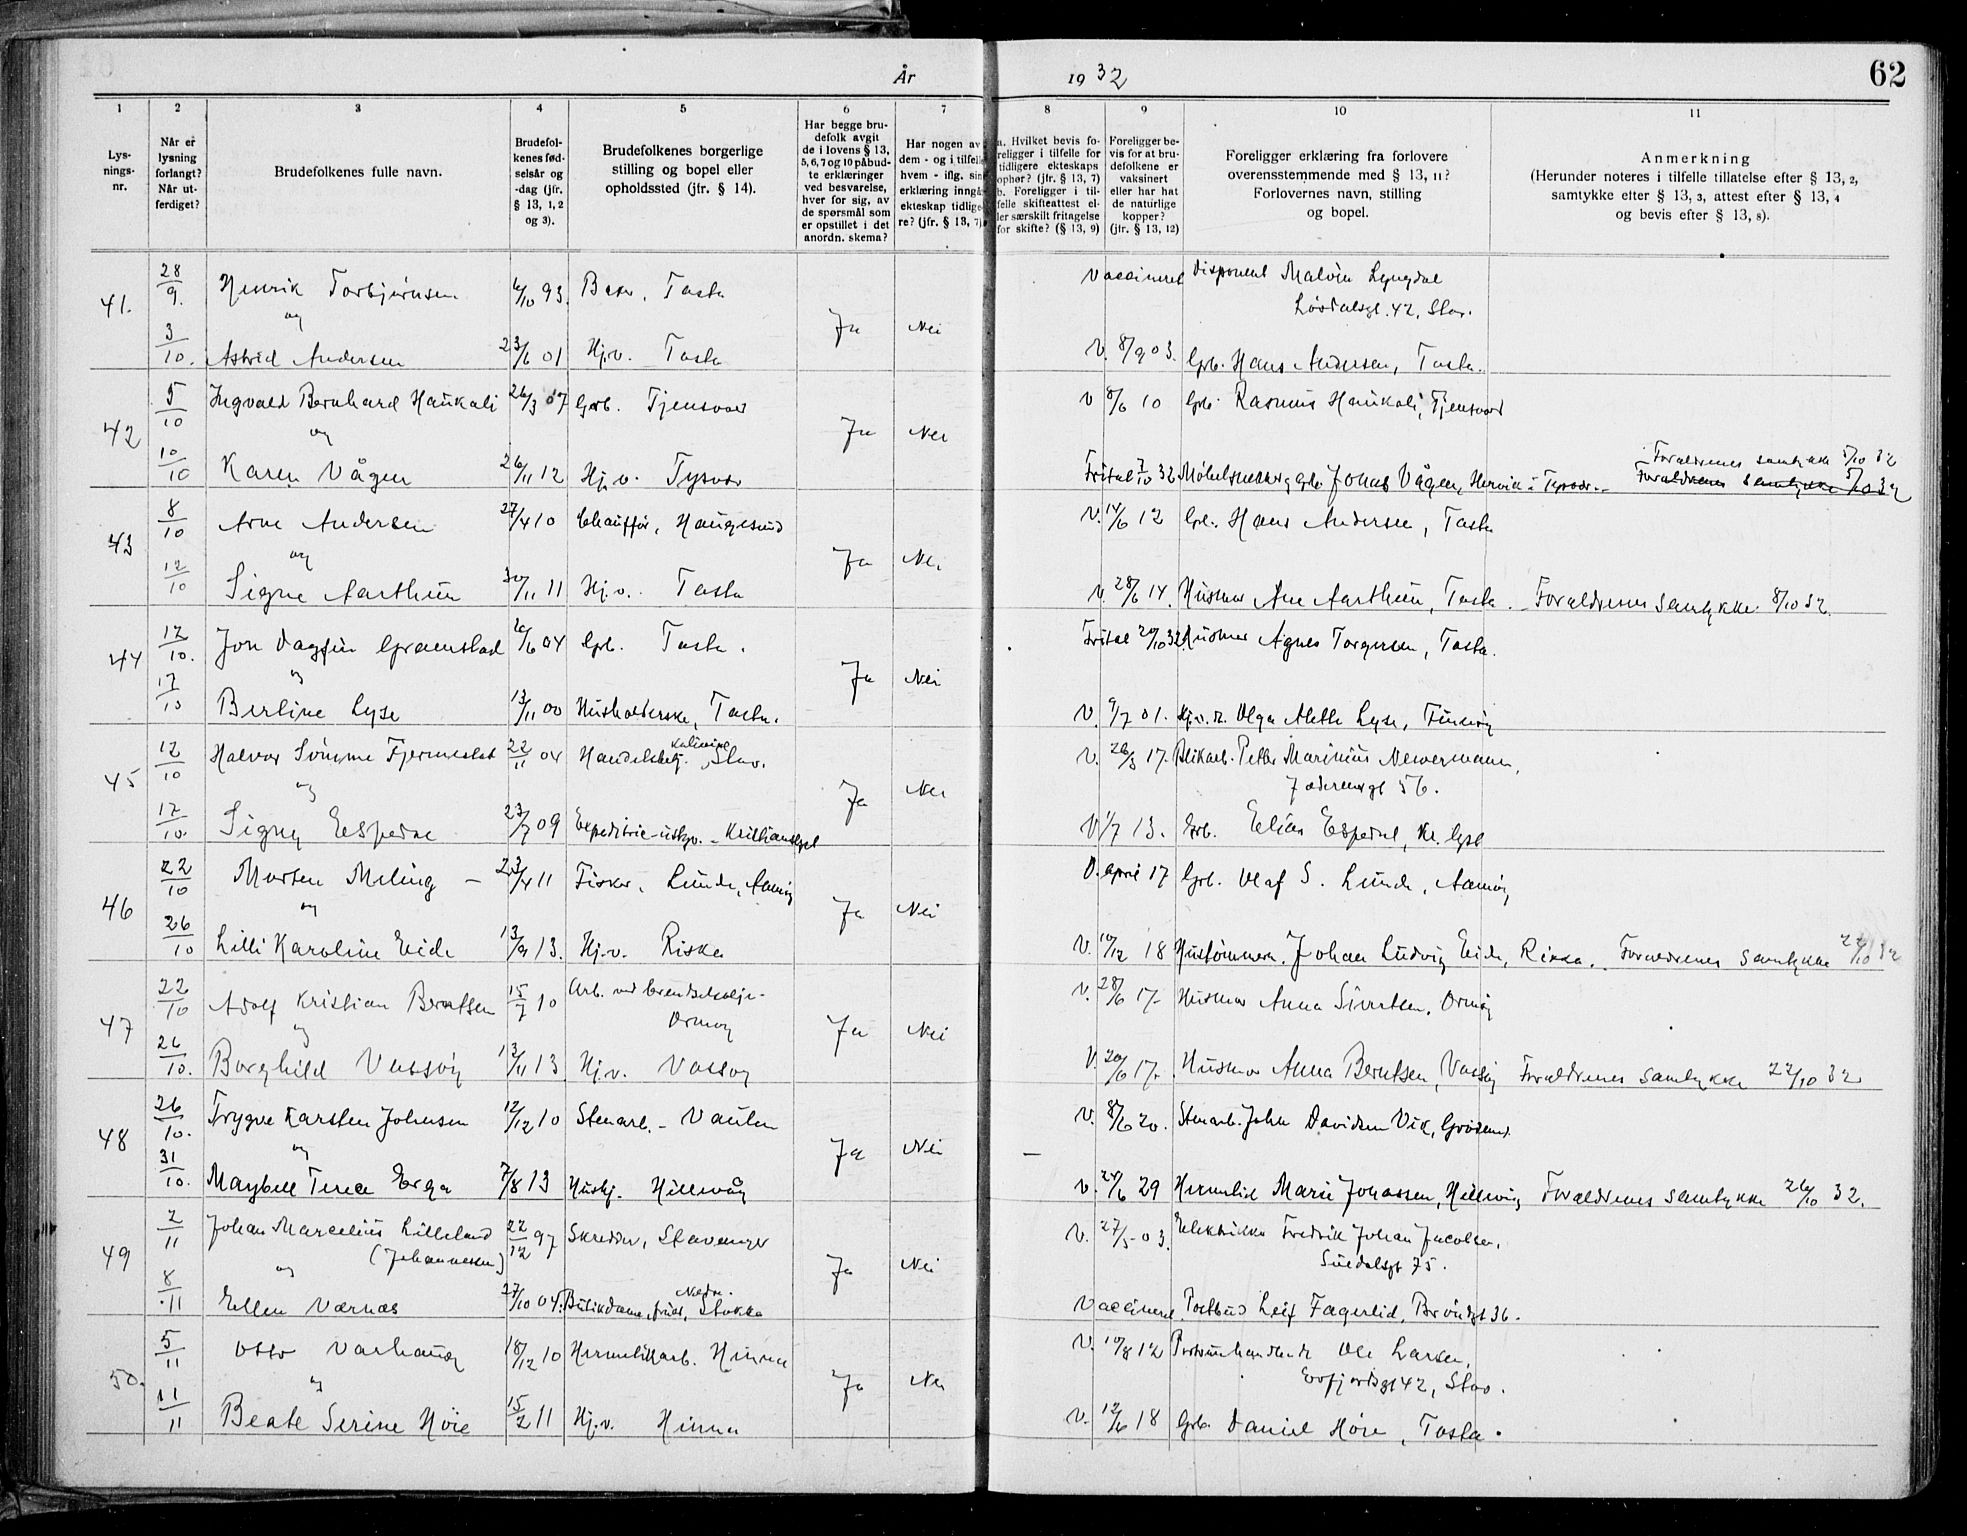 År 1932
62
1 2 3 4 5 6 7 8 9 10 11
Lysningsnr.
Når er lysning forlangt? Når utferdiget?
Brudefolkenes fulle navn.
Brudefolkenes fødselsår og -dag (jfr. § 13, 1, 2 og 3).
Brudefolkenes borgerlige stilling og bopel eller opholdssted (jfr. § 14).
Har begge brudefolk avgit de i lovens § 13, 5, 6, 7 og 10 påbudte erklæringer ved besvarelse, hver for sig, av de spørsmål som er opstillet i det anordn. skema?
Har nogen av dem - og i tilfelle hvem - iflg. sin erklæring inngått ekteskap tidligere? (jfr. § 13, 7)
a. Hvilket bevis foreligger i tilfelle for tidligere ekteskaps ophør? (jfr. § 13, 7) b. Foreligger i tilfelle skifteattest eller særskilt fritagelse for skifte? (§ 13, 9)
Foreligger bevis for at brudefolkene er vaksinert eller har hat de naturlige kopper? (jfr. § 13, 12)
Foreligger erklæring fra forlovere overensstemmende med § 13, 11? Forlovernes navn, stilling og bopel.
Anmerkning (Herunder noteres i tilfelle tillatelse efter § 13, 2, samtykke efter § 13, 3, attest efter § 13, 4 og bevis efter § 13, 8).
41. 28/9. Henrik Torbjørnsen 6/10 93. Baker, Tasta Vaccineret Disponent Malvin Lyngdal
Løvdalsgt. 42, Stav.
og Ja Nei
3/10. Astrid Andersen 23/6 01 Hj.v. Tasta V. 8/9 03. Grb. Hans Andersen, Tasta.
42 5/10 Ingvald Bernhard Haukali 26/3 07 Grb. Tjensvoll V 8/6 10 Grb. Rasmus Haukali, Tjensvoll
og Ja Nei
Foreldrenes samtykke 5/10 32
10/10 Karen Vågen 26/11 12 Hj.v. Tysvær Fritat 7/10 32 Møbelsnekker, grb. Jonas Vågen, Hervik i Tysvær. Foreldrenes samtykke 5/10 32
43 8/10 Arne Andersen 27/4 10 Chauffør, Haugesund V. 14/6 12 Grb. Hans Andersen, Tasta
og Ja Nei
12/10 Signe Aarthun 30/11 11 Hj.v. Tasta V. 28/6 14. Husmor Ane Aarthun, Tasta. Foreldrenes samtykke 8/10 32.
44 12/10. Jon Dagfin Gramstad 6/6 04 Grb. Tasta. Fritat 20/10 32 Husmor Agnes Torgersen, Tasta.
og Ja Nei
17/10 Berline Lyse 13/11 00 Husholderske, Tasta. V. 9/7 01. Hj.v. Olga Alette Lyse, Finnøy
45 12/10 Halvor Sømme Fjermestad 22/11 04 Handelsbetj. Stav. V. 26/3 17. Blikarb. Petter Marinius Newermann,
Jæderengt 56.
og Ja Nei
17/10. Signy Espedal 23/7 09 Expeditrise V 1/7 13. Grb. Elias Espedal
46 22/10 Morten Meling – 23/4 11 Fisker, Lunde, Aamøy V. april 17 Grb. Olaf S. Lunde, Aamøy
og Ja Nei
26/10 Lilli Karoline Eide 13/9 13. Hj.v. Riska V. 10/12 18 Hustømmerm. Johan Ludvig Eide, Riska. Foreldrenes samtykke 22/10 32
47 22/10 Adolf Kristian Berntsen 15/7 10 Arb. ved brendselolje-
Ormøy V. 28/6 17. Husmor Anna Sivertsen, Ormøy
og Ja Nei
26/10. Borghild Vassøy 13/11 13 Hj.v. Vassøy V. 20/6 17. Husmor Anna Berntsen, Vassøy Foreldrenes samtykke 22/10 32
48 26/10. Trygve Karsten Johnsen 12/12 10 Stenarb. – Vaulen V. 8/6 20. Stenarb. John Davidsen Vik
og Ja Nei –
31/10. Maybell Terea Erga 7/8 13 Hushj. Hillevåg V. 24/6 29 Marie Johassen, Hillevåg Foreldrenes samtykke 26/10 32.
49 2/11 Johan Marcelius Lilleland 22/12 97 Skredder, Stavanger V. 27/5 03. Elektriker Fredrik Johan Jacobsen,
(Johannessen)
og Ja Nei
8/11 Ellen Værnæs 27/10 04. Butikdame, Nedre Stokka Vaccineret. Postbud Leif Fagerlid, 36.
50. 5/11 Otto Varhaug 18/12 10 Hermetikkarb. Hinna V. 10/8 12 Ole Larsen,
42, Stav.
og Ja Nei
11/11 Beate Serine Høie 15/2 11 Hj.v. Hinna V. 12/6 18 Grb. Daniel Høie, Tasta.